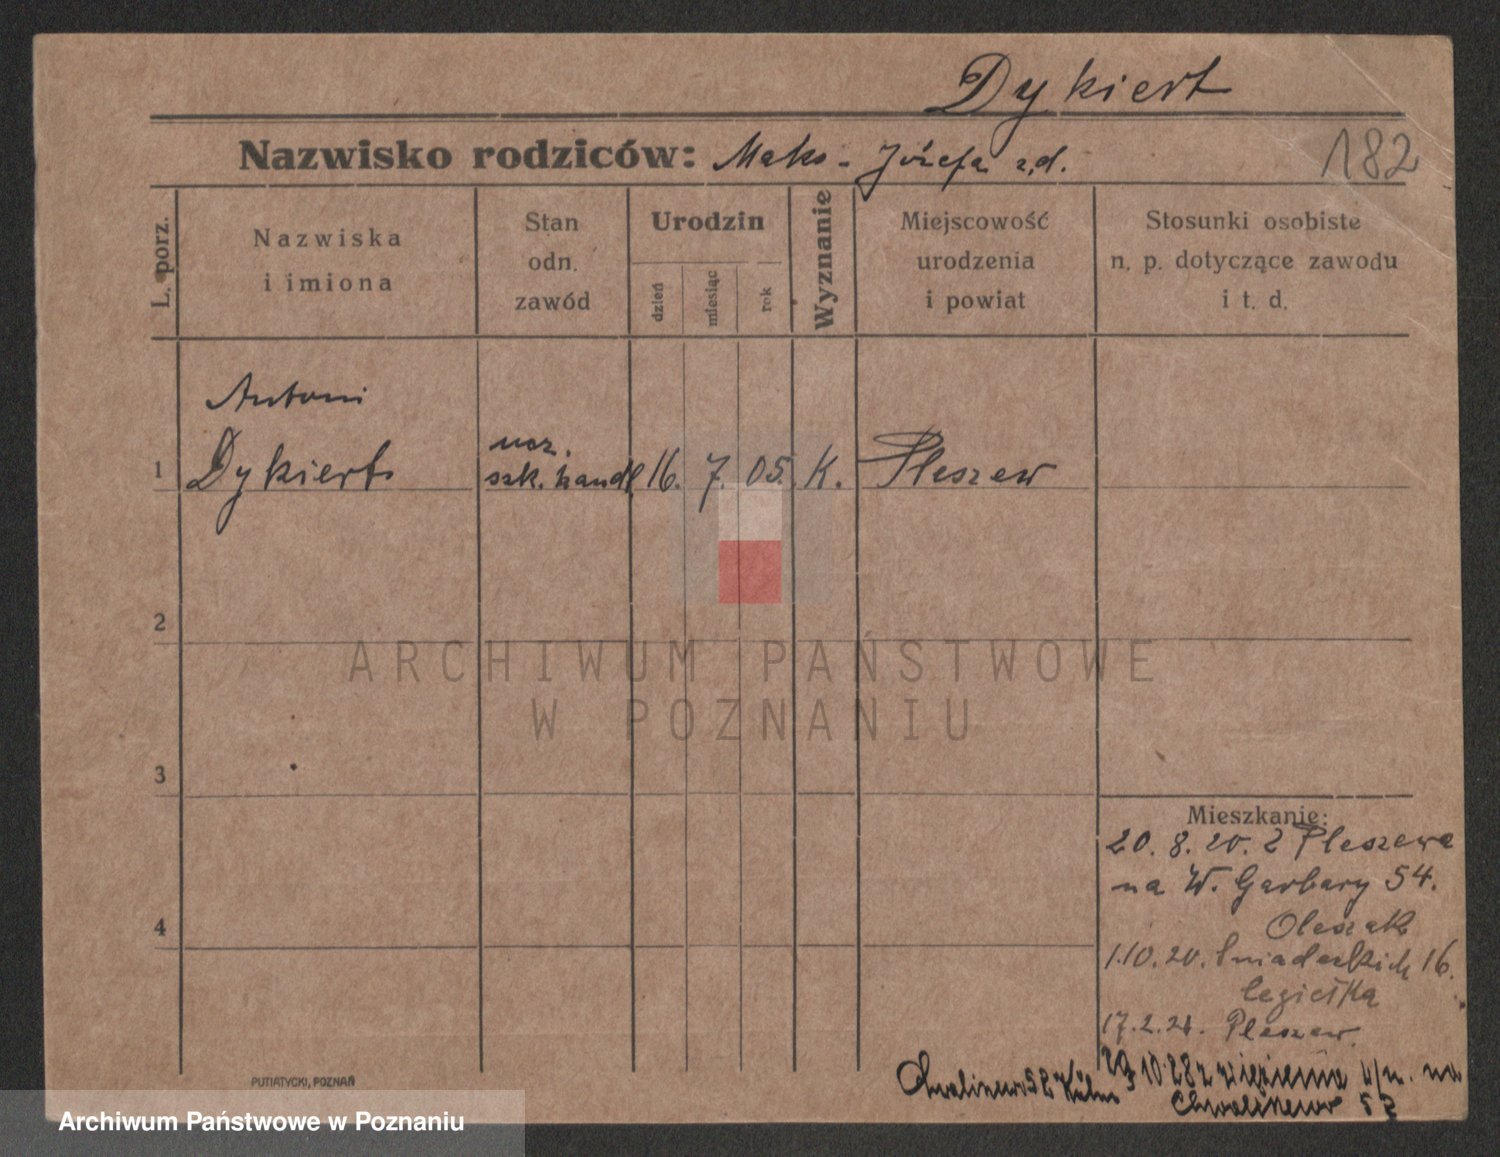 Dykiert
Nazwisko rodziców: Maks - Józefa z d.
182
L. porz.
Nazwiska
i imiona
Stan
odn.
zawód
Urodzin
dzień
miesiąc
rok
Wyznanie
Miejscowość
urodzenia
i powiat
Stosunki osobiste
n. p. dotyczące zawodu
i t. d.
Antoni
1 Dykiert
ucz.
szk. handl. 16. 7. 05. K. Pleszew
2
ARCHIWUM PAŃSTWOWE
W POZNANIU
3
Mieszkanie:
20. 8. 20. z Pleszewa
na W. Garbary 54.
Oleszak
4
1.10.20. Śniadeckich 16.
17.2.21. Pleszew.
10.28 z więzienia na
Chwaliszewo 52
Chwaliszewo 52
PUTIATYCKI, POZNAŃ
Archiwum Państwowe w Poznaniu